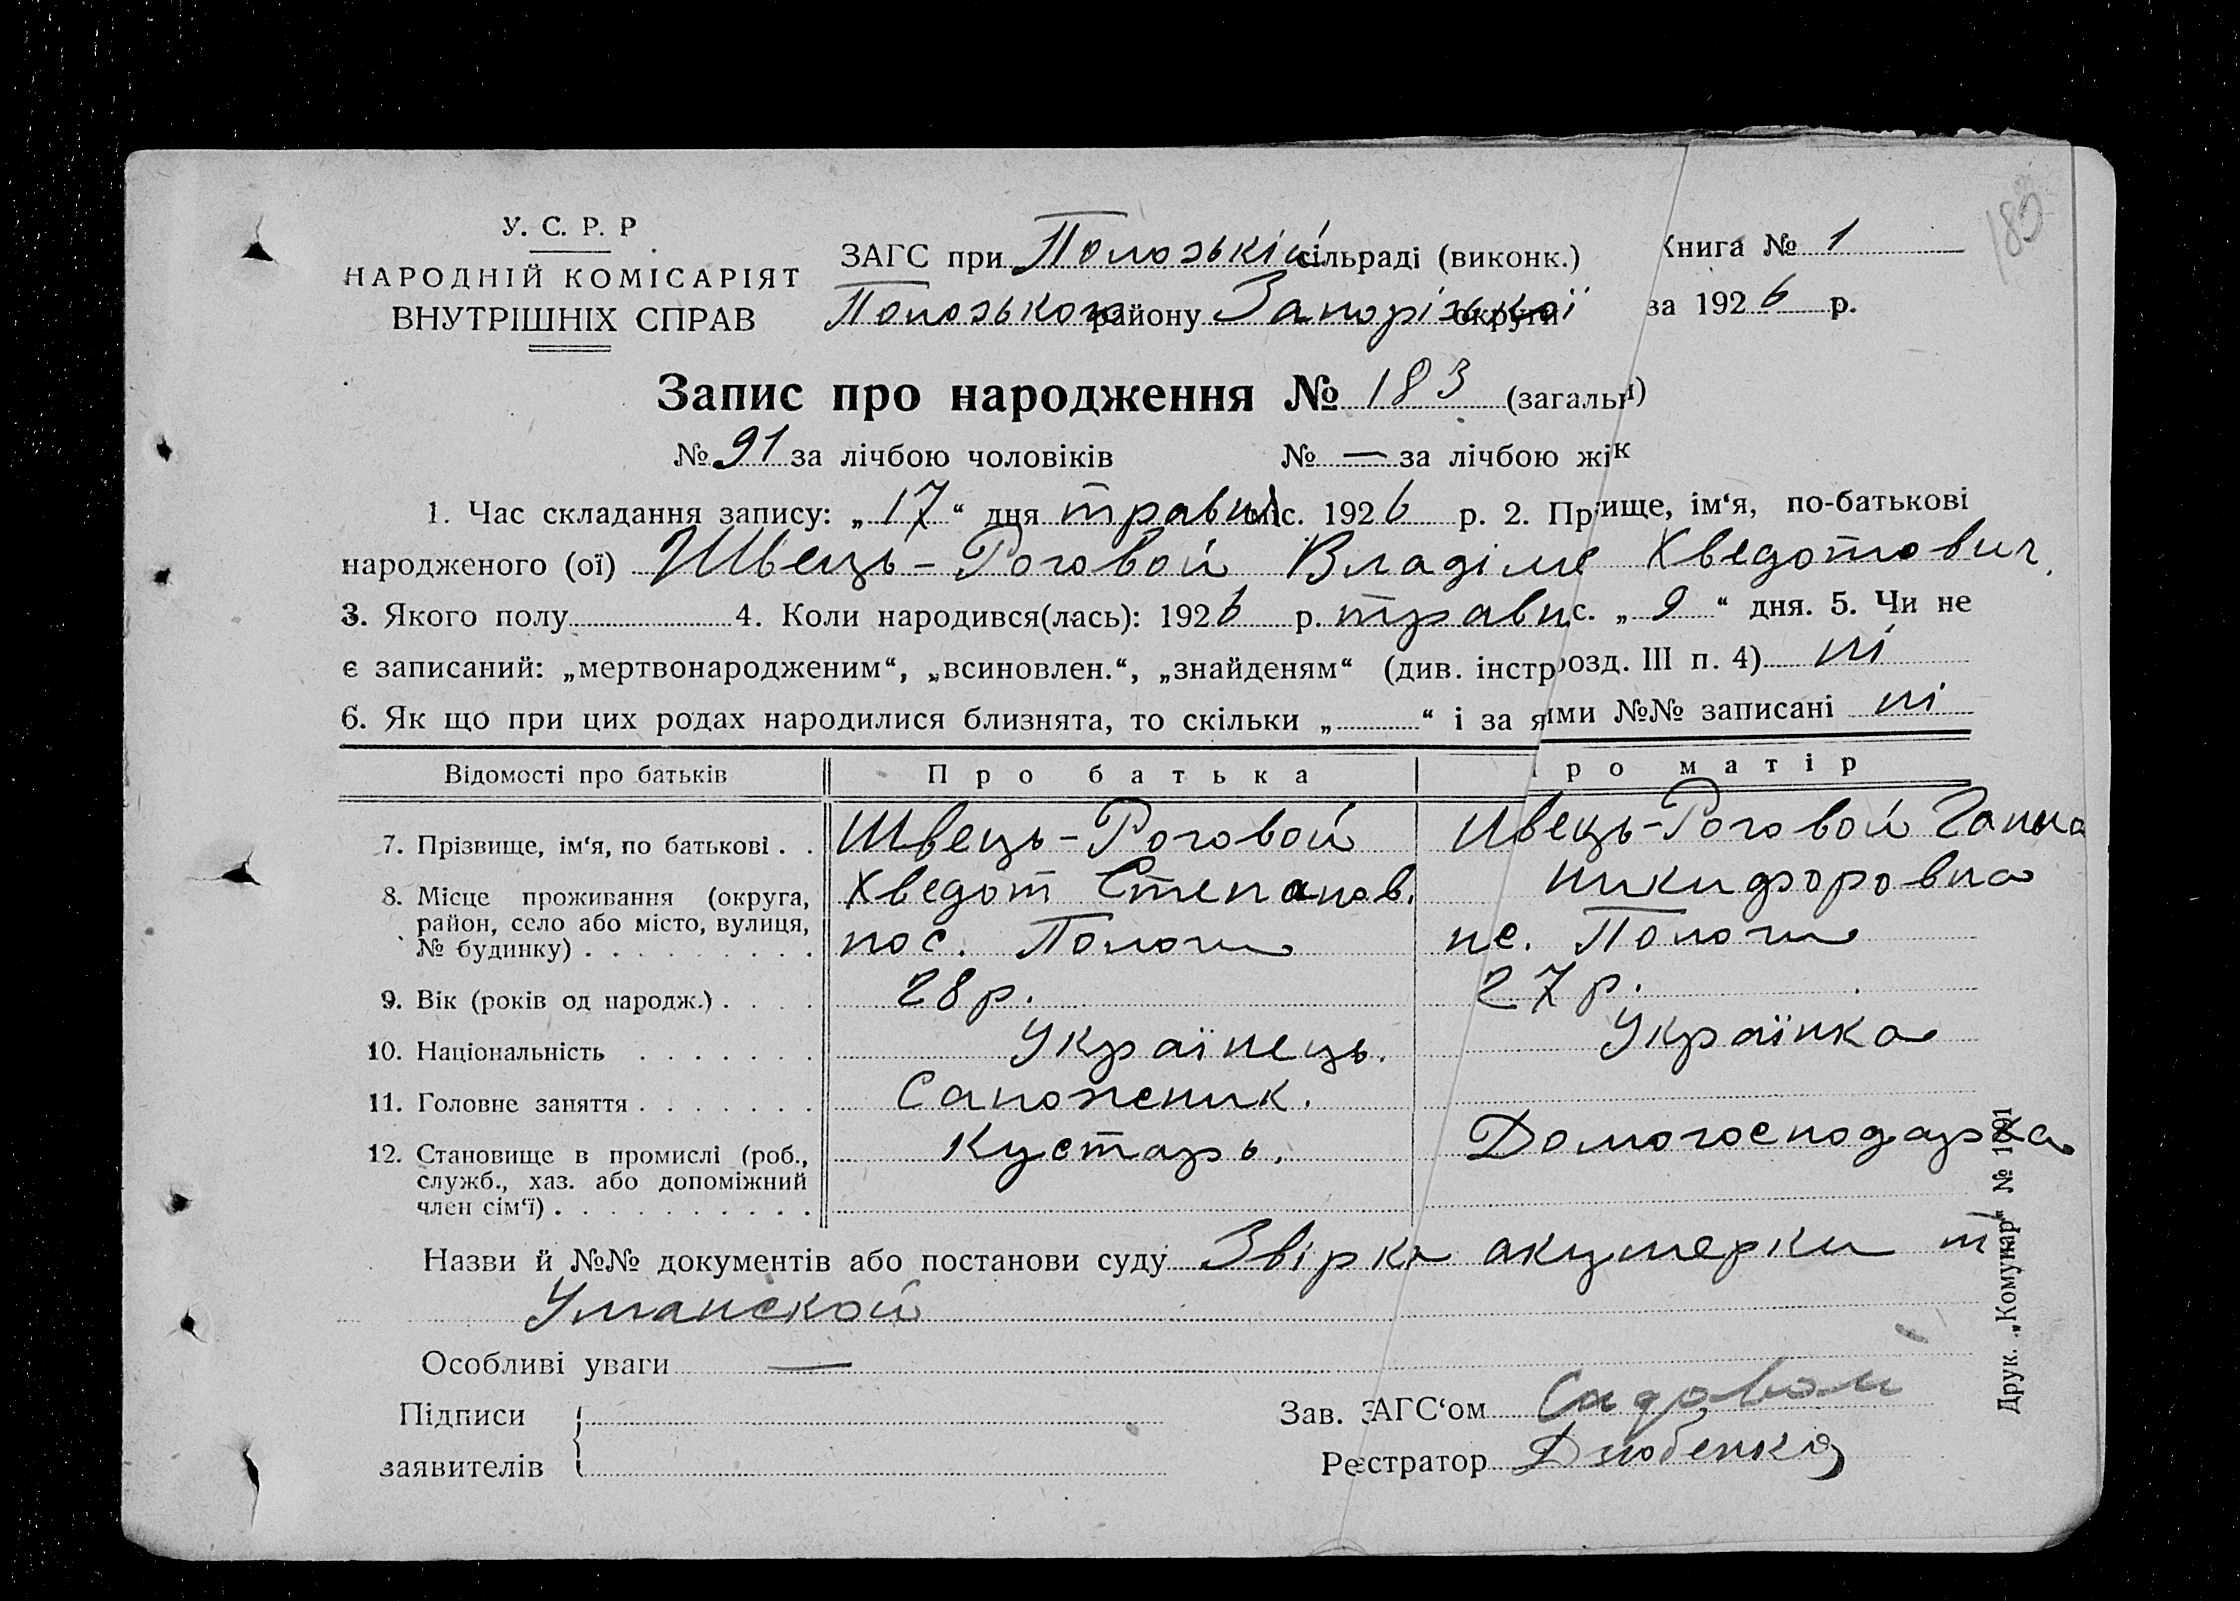 183
У. С. Р. Р.
НАРОДНІЙ КОМІСАРІЯТ
ВНУТРІШНІХ СПРАВ
ЗАГС при Полозькій сільраді (виконк.)
Полозького району Запорізької округи
Книга № 1
за 1926 р.
Запис про народження № 183 (загальн)
№ 91 за лічбою чоловіків № — за лічбою жік
1. Час складання запису: „17“ дня травня міс. 1926 р. 2. Прізвище, ім‘я, по-батькові
народженого (ої) Швець-Роговой Владіме Хведотович.
3. Якого полу 4. Коли народився(лась): 1926 р. травн с. „9“ дня. 5. Чи не
є записаний: „мертвонародженим“, „всиновлен.“, „знайденям“ (див. інстр розд. III п. 4) ні
6. Як що при цих родах народилися близнята, то скільки „ “ і за якими №№ записані ні
Відомості про батьків Про батька Про матір
7. Прізвище, ім‘я, по батькові . . Швець-Роговой Хведот Степанов. Швець-Роговой Ганна Никифоровна
8. Місце проживання (округа,
район, село або місто, вулиця,
№ будинку) . . . . . . . . . пос. Пологи пс. Пологи
9. Вік (років од народж.) . . . . 28 р. 27 р.
10. Національність . . . . . . . Українець. Українка
11. Головне заняття . . . . . . . Сапожник.
12. Становище в промислі (роб.,
служб., хаз. або допоміжний
член сім‘ї) . . . . . . . . . . Кустарь. Домогосподарка
Назви й №№ документів або постанови суду Звірка акушерки
Уманской
Особливі уваги —
Підписи
заявителів
Зав. ЗАГС‘ом Садовой
Реєстратор Дзюбенко
Друк. „Комунар“ № 1891